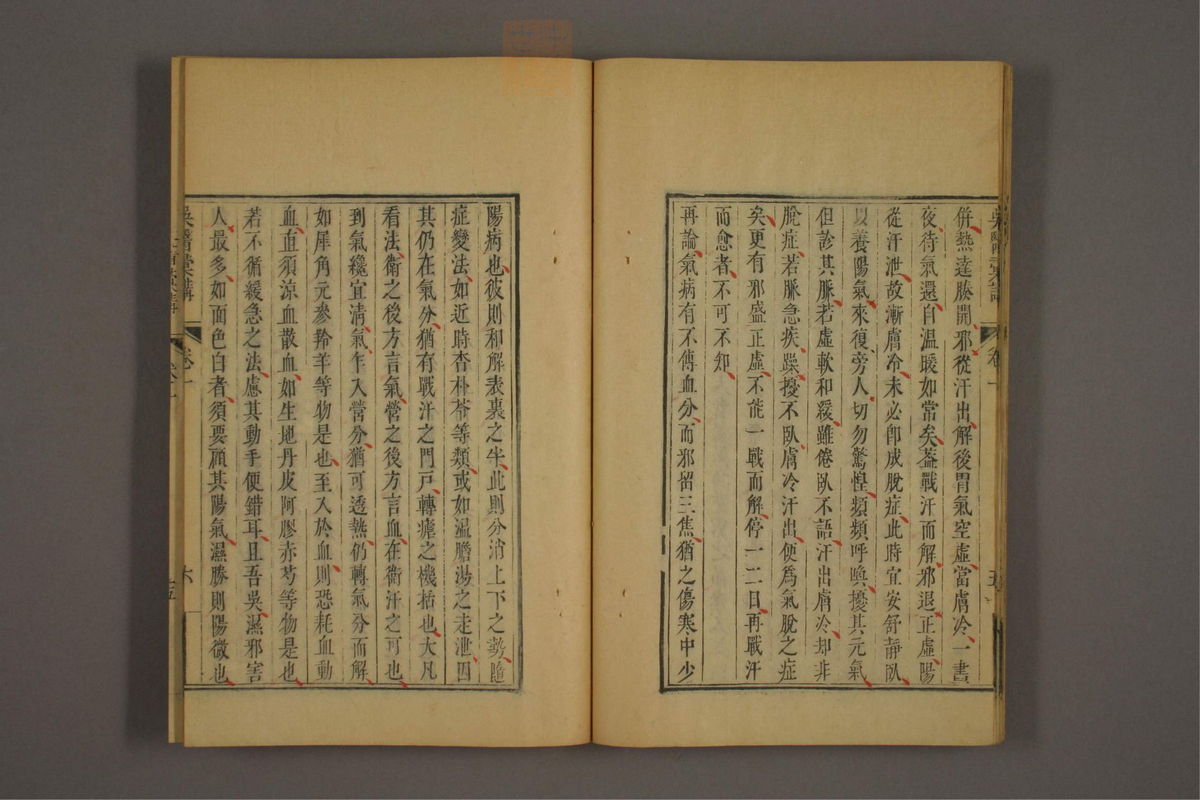 併熱達腠開邪從汗出解後胃氣空虛當膚冷一晝
夜待氣還自温暖如常矣葢戰汗而解邪退正虛陽
從汗泄故漸膚冷未必卽成脫症此時宜安舒靜臥
以養陽氣來復旁人切勿驚惶頻頻呼喚擾其元氣
但診其脈若虛軟和緩雖倦臥不語汗出膚冷却非
脫症若脈急疾躁擾不臥膚冷汗出便爲氣脫之症
矣更有邪盛正虛不能一戰而解停一二日再戰汗
而愈者不可不知
再論氣病有不傳血分而邪留三焦猶之傷寒中少
陽病也彼則和解表裏之半此則分消上下之勢隨
症變法如近時杏朴苓等類或如温膽湯之走泄因
其仍在氣分猶有戰汗之門戸轉瘧之機括也大凡
看法衛之後方言氣營之後方言血在衛汗之可也
到氣纔宜清氣乍入營分猶可透熱仍轉氣分而解
如犀角元參羚羊等物是也至入於血則恐耗血動
血直須涼血散血如生地丹皮阿膠赤芍等物是也
若不循緩急之法慮其動手便錯耳且吾吳濕邪害
人最多如面色白者須要顧其陽氣濕勝則陽微也
吳醫彚講
卷一
六